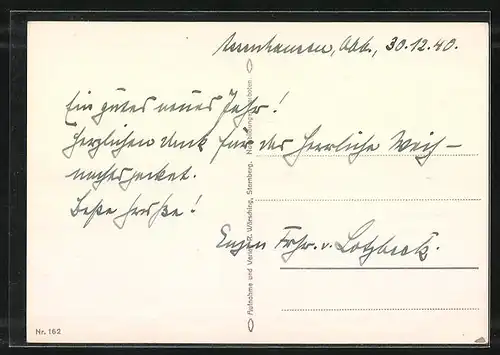 30.12.40.
Ein gutes neues Jahr!
Herzlichen Dank für das herrliche Weih-
nachtspacket.
Beste Grüße!
Eugen Frhr. v. Lotzbeck.
Aufnahme und Verlag R. Wörsching, Starnberg.
Nr. 162